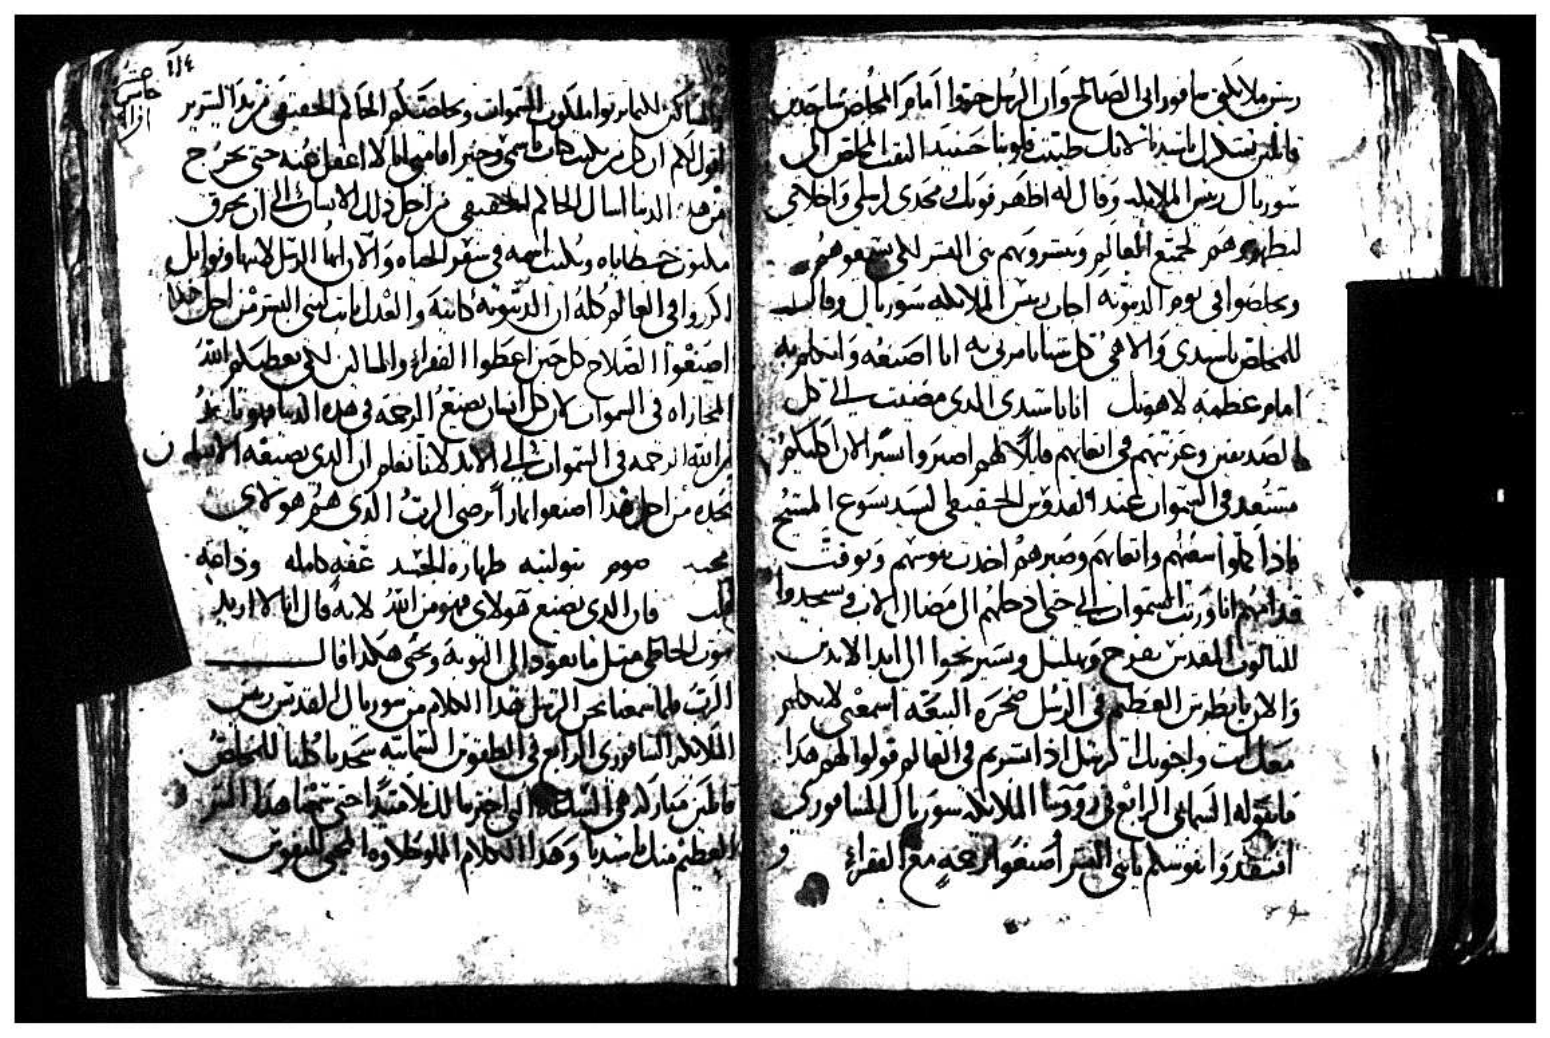 رئيس ملايكة سافوراني الصالح وان الرسل خروا امام المخلص ساجدين
قايلين نشكرك ياسيدنا لانك طيبت قلوبنا حينيد التفت المخلص الى
سوريال رييس الملايكه وقال له اظهر قوتك ومجدى لرسلي واخلاي
ليظهروهم لجميع العالم ويبشروبهم بنى البشر لكى يتبعوهم
ويخلصوا في يوم الدينونه اجاب رييس الملايكه سوريال وقال
للمخلص ياسيدى والاهي كل شيا تامرني به انا اصنعه واتكلم به
امام عظمة لاهوتك انا ياسيدى الدى مضيت الى كل
الصديقين وعزيتهم في اتعابهم قايلا لهم اصبروا يسيرا الان اكليلكم
مستعد في السموات عند القدوس الحقيقي السيد يسوع المسيح
فاذا كملوا سعيهم واتعابهم وصبرهم اخدت نفوسهم ووقفت
قدامهم انا ورتب السموات الى حيثما ادخلهم الى مضال الاب ويسجدوا
للتالوت المقدس بفرح وتهليل ويستريحوا الى ابد الابدين
والان يا بطرس العظيم في الرسل صخرة البيعه اسمعني لاتكلم
معك انت واخوتك الرسل اذا بشرتم في العالم قولوا لهم هدا
ماتقوله السماى الرابع في روسا الملايكه سوريال السافوري
افتقدوا نفوسكم يابنى البشر اصنعوا رحمه مع الفقراء
والمساكين لكيما ترتوا ملكوت السموات ويخلصكم الحاكم الحقيقي
اقول لكم ان كل من يكتب كتاب باسمي وخبر اقامتي انا لا اغفل عنه حتى يخرج
من هده الدنيا اسال الحاكم الحقيقي من اجل دلك الانسان الى ان يحرق
مكتوب خطاياه ويكتب اسمه في سفر الحياه والان ايها الرسل
اكرزوا في العالم كله ان الدينونه كاينه والعدل يات لبنى البشر من اجل هدا
اصنعوا الصلاح كل حين اعطوا الفقراء والمساكين لكى يعطيكم الله
المجازاه في السموات لان كل انسان يصنع الرحمه في هده الدنيا فهو ياخد
من الله الرحمه في السموات الى الابد لاننا نعلم ان الدى يصنعه الانسان
يجده من اجل هدا اصنعوا ثمارا ترضى الرب الدى هم هولاى
محبه صوم بتوليه طهارة الجسد عفه كامله وداعه
قلب فان الدى يصنع هولاى فهو من الله لانه قال انا لا اريد
موت الخاطى مثل ما يعود الى التوبه ويحيى هكدا قال
الرب فلما سمعنا نحن الرسل هدا الكلام من سوريال القديس رييس
الملايكه السافوري الرابع في الطقوس السمايه سجدنا كلنا للمخلص
قايلين مباركه هى الساعه التى اخترتنا لك تلاميدا حتى سمعنا هدا السر
العظيم منك ياسيدنا وهدا الكلام المملو حلاوه المحيى للنفوس